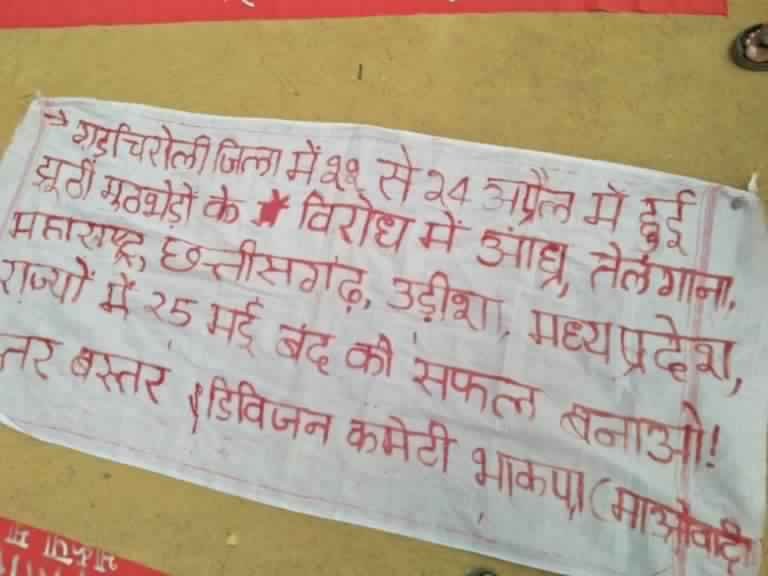 → गड़चिरोली जिला में २२ से २4 अप्रैल में हुई
झूठी मुठभेड़ों के विरोध में आंध्र, तेलंगाना,
महाराष्ट्र, छत्तीसगढ़, उड़ीशा, मध्यप्रदेश,
राज्यों में २5 मई बंद को सफल बनाओ!
तर बस्तर डिविजन कमेटी भाकपा (माओवादी